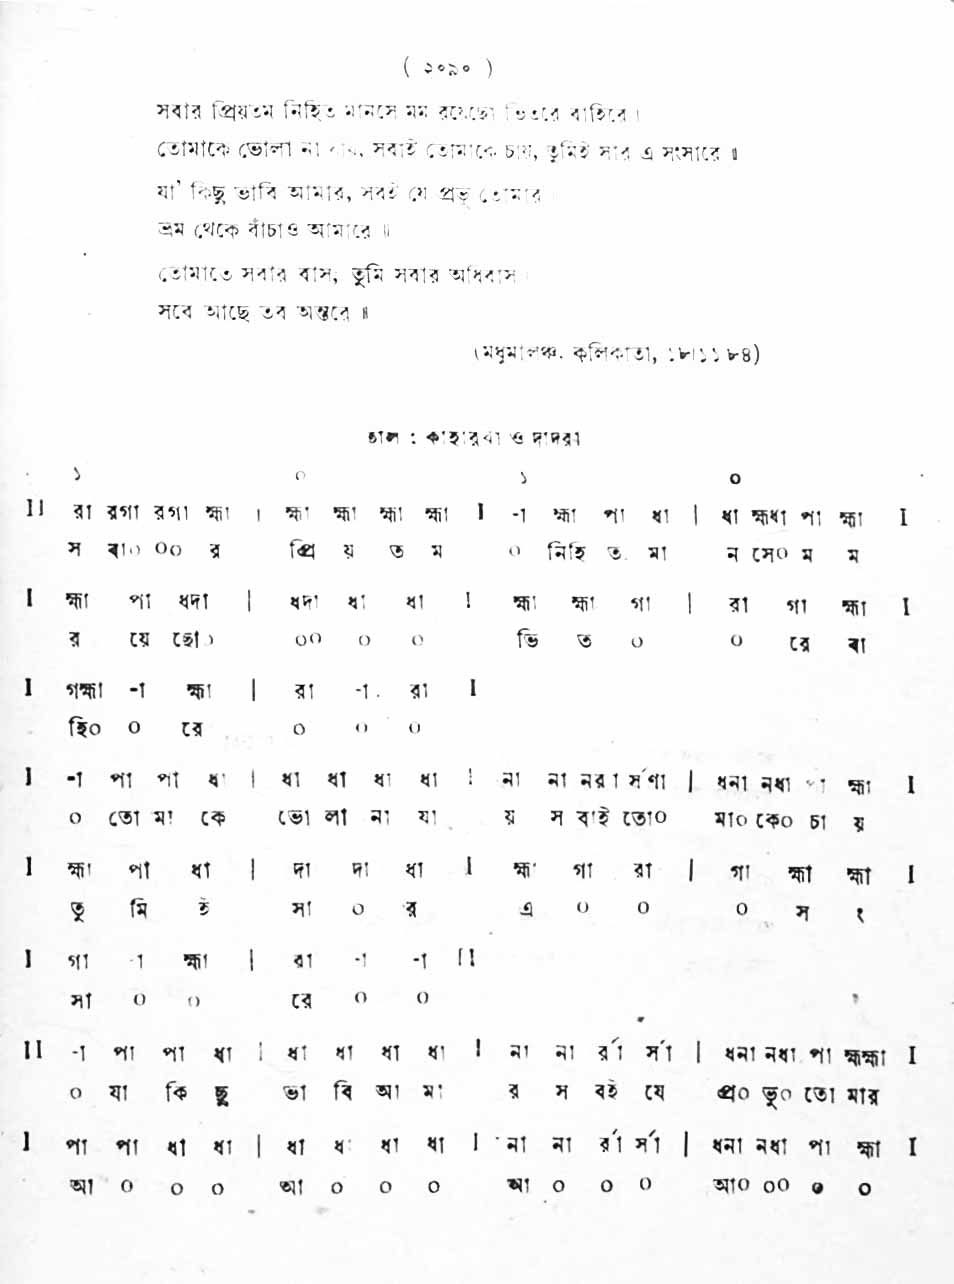 ( ২০৯০ )
সবার প্রিয়তম নিহিত মানসে মম রয়েছো ভিতরে বাহিরে ।
তোমাকে ভোলা না যায়, সবাই তোমাকে চায়, তুমিই সার এ সংসারে ॥
যা' কিছু ভাবি আমার, সবই যে প্রভু তোমার
ভ্রম থেকে বাঁচাও আমারে ॥
তোমাতে সবার বাস, তুমি সবার অধিবাস ।
সবে আছে তব অন্তরে ॥
(মধুমালঞ্চ. কলিকাতা, ১৮।১১ ৮৪)
তাল : কাহারবা ও দাদরা
১ ০ ১ ০
II রা রগা রগা হ্মা । হ্মা হ্মা হ্মা হ্মা I -া হ্মা পা ধা | ধা হ্মধা পা হ্মা I
স বা০ ০০ র প্রি য় ত ম ০ নিহি ত. মা ন সে০ ম ম
I হ্মা পা ধদা | ধদা ধা ধা I হ্মা হ্মা গা | রা গা হ্মা I
র য়ে ছো০ ০০ ০ ০ ভি ত ০ ০ রে বা
I গহ্মা -া হ্মা | রা -া. রা I
হি০ ০ রে ০ ০ ০
I -া পা পা ধা | ধা ধা ধা ধা I না না নরা র্সণা | ধনা নধা পা হ্মা I
০ তো মা কে ভো লা না যা য় স বাই তো০ মা০ কে০ চা য়
I হ্মা পা ধা | দা দা ধা I হ্মা গা রা | গা হ্মা হ্মা I
তু মি ই সা ০ র এ ০ ০ ০ স ং
I গা -া হ্মা | রা -া -া II
সা ০ ০ রে ০ ০
II -া পা পা ধা | ধা ধা ধা ধা I না না র্রা র্সা | ধনা নধা পা হ্মহ্মা I
০ যা কি ছু ভা বি আ মা র স বই যে প্র০ ভু০ তো মার
I পা পা ধা ধা | ধা ধা ধা ধা I না না র্রা র্সা | ধনা নধা পা হ্মা I
আ ০ ০ ০ আ ০ ০ ০ আ ০ ০ ০ আ০ ০০ ০ ০